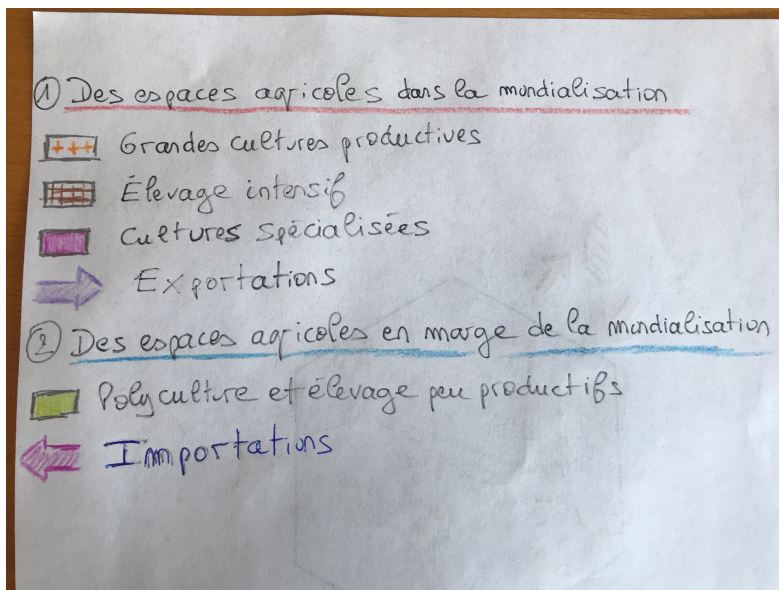 ① Des espaces agricoles dans la mondialisation
Grandes cultures productives
Élevage intensif
Cultures spécialisées
Exportations
② Des espaces agricoles en marge de la mondialisation
Polyculture et élevage peu productifs
Importations